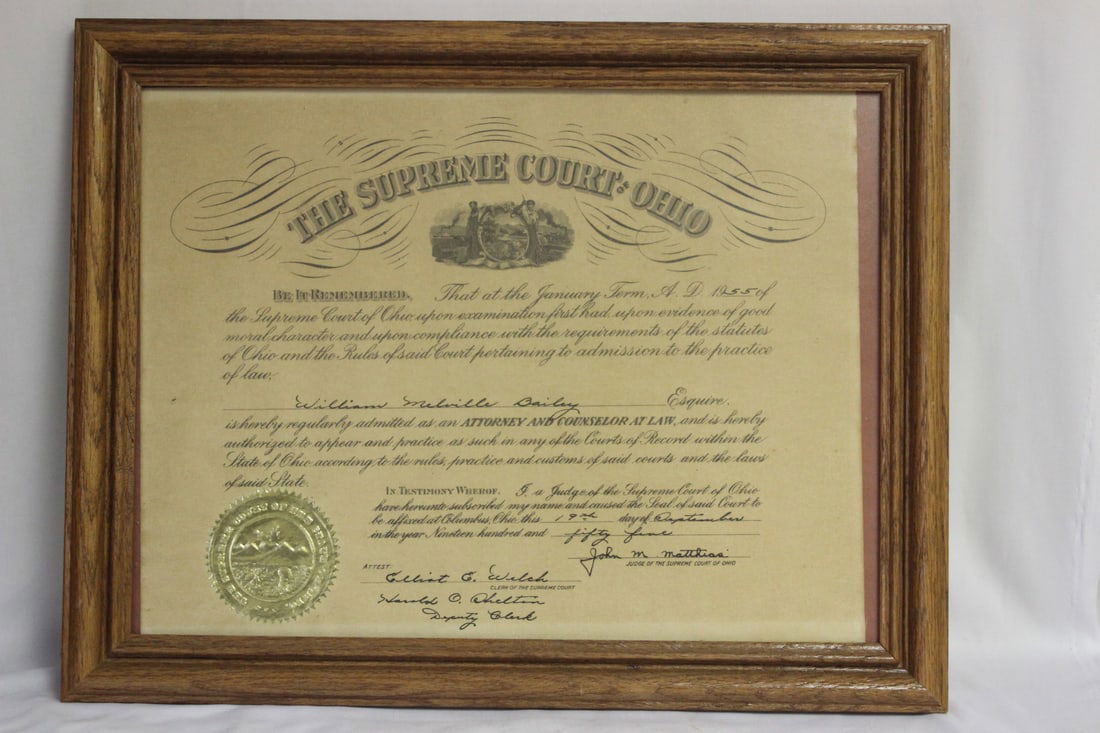 THE SUPREME COURT OF OHIO
BE IT REMEMBERED, That at the January Term, A. D. 1955 of
the Supreme Court of Ohio, upon examination first had, upon evidence of good
moral character and upon compliance with the requirements of the statutes
of Ohio and the Rules of said Court pertaining to admission to the practice
of law,
William Melville Dailey Esquire,
is hereby regularly admitted as an ATTORNEY AND COUNSELOR AT LAW, and is hereby
authorized to appear and practice as such in any of the Courts of Record within the
State of Ohio according to the rules, practice and customs of said courts and the laws
of said State.
IN TESTIMONY WHEROF, I, a Judge of the Supreme Court of Ohio
have hereunto subscribed my name and caused the Seal of said Court to
be affixed at Columbus, Ohio, this 19th day of September
in the year Nineteen hundred and fifty five
John M. Matthias
JUDGE OF THE SUPREME COURT OF OHIO
ATTEST:
Elliot E. Welch
CLERK OF THE SUPREME COURT
Harold O. Chelton
Deputy Clerk